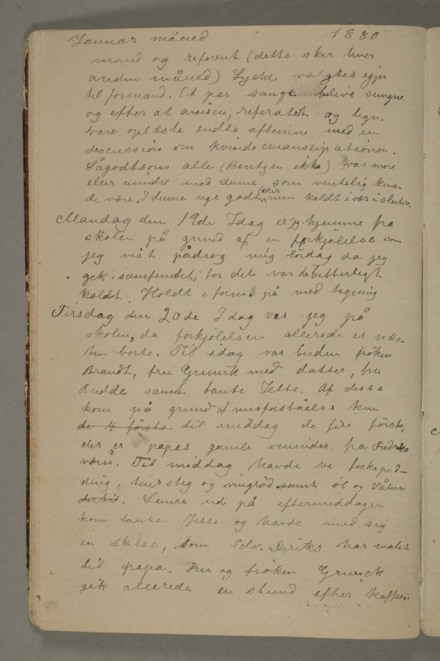 Januar måned 1880
mand og referent (dette sker hver
anden måned) Lyche valgtes igjen
til formand. Et par sange blive sungne
og efter at avisen, referatet og lign.
vare oplæste endte aftenen med en
discussion om kvindeemancipationen.
Sågodtsom alle (Bentzen ikke) var mere
eller mindre mod denne, som ventelig kun-
de være. I denne uge godt men koldt især i slutn.
Mandag den 19de Idag er jeg hjemme fra
skolen på grund af en forkjølelse som
jeg vist pådrog mig lördag da jeg
gik i samfundet; for det var da bitterligt
koldt. Holdt i form på med tegning
Tirsdag den 20de I dag var jeg på
skolen, da forkjölelsen allerede er næs-
ten borte. Til idag var buden fröken
Brandt, fru Gymnich med datter, fru
Budde samt tante Jette. Af disse
kom på grund af misforståelse kun
de 4 første til middag de fire første,
der er papas gamle veninder fra Fredriks
værn. Til middag havde vi fiskepud-
ding, tørsteg og vingrød samt öl og
Senere ud på eftermiddagen
kom tante Jette og havde med sig
en skitse, som Edv. Diriks har malet
til papa. Fru og fröken
gik allerede en stund efter kaffen